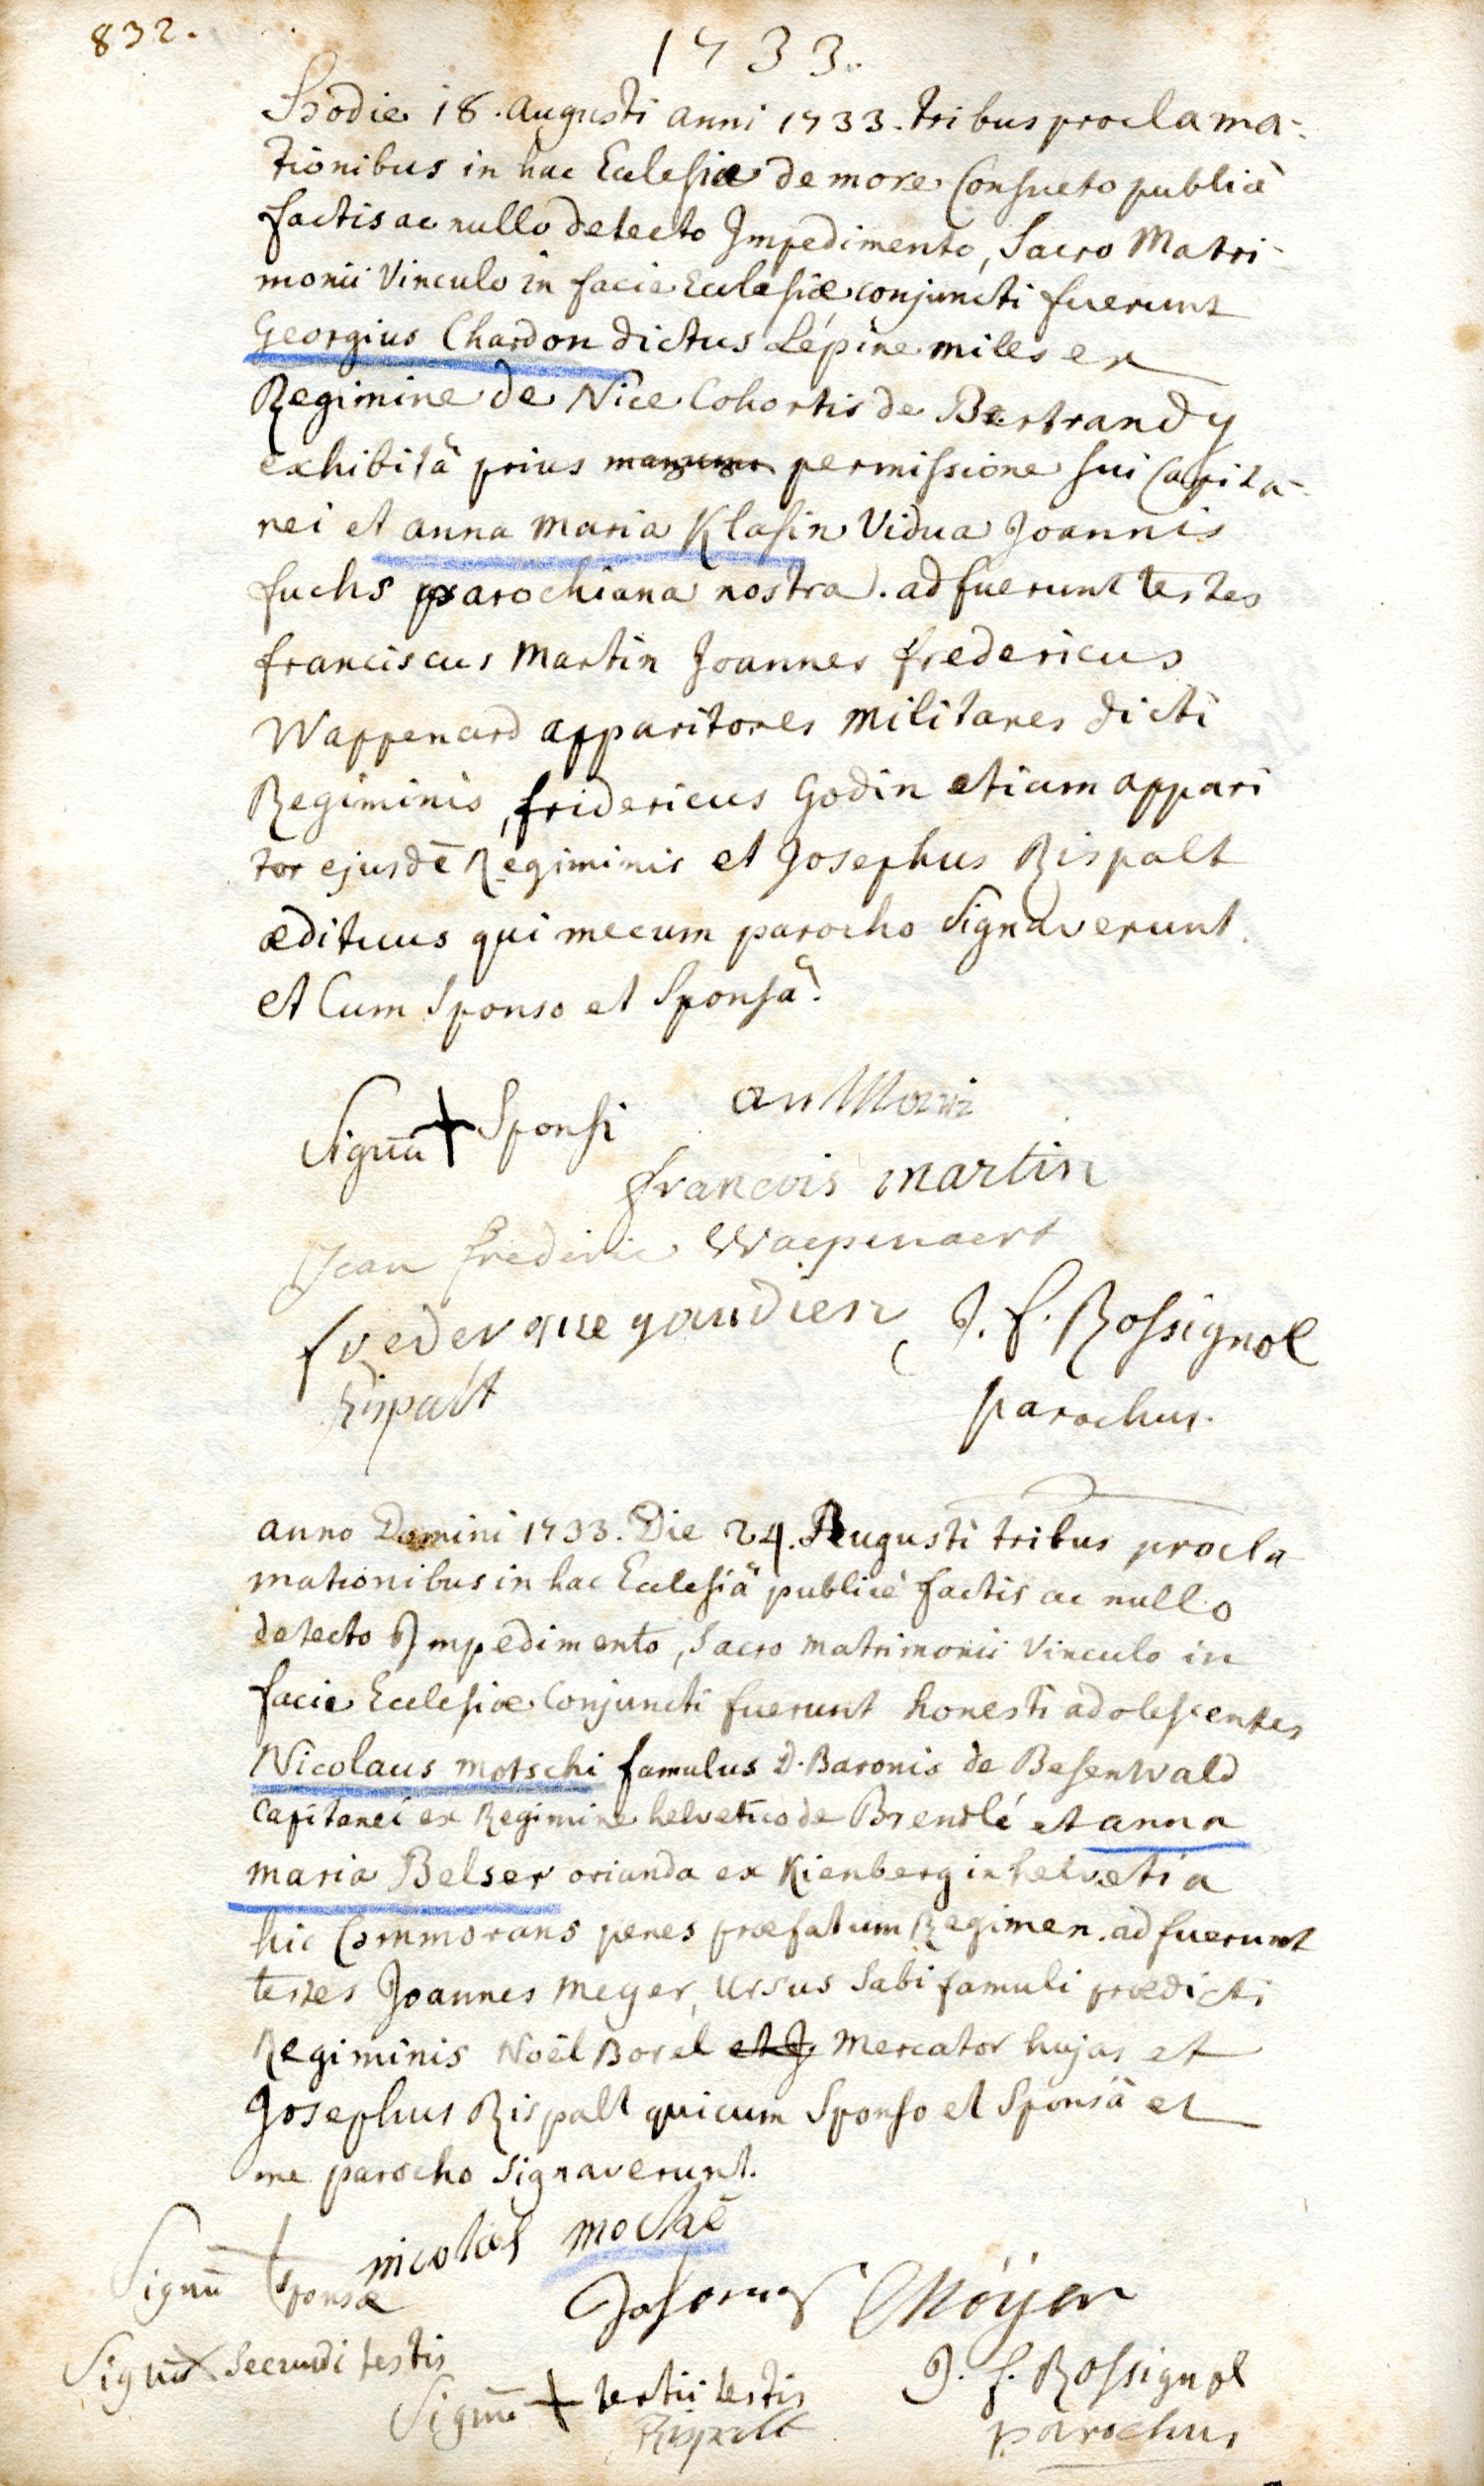 832.
1733.
Hodie 18. Augusti anni 1733. tribus proclama-
tionibus in hac Ecclesia de more Consueto publicè
factis ac nullo detecto Impedimento, Sacro Matri-
monii Vinculo in facie Ecclesiæ conjuncti fuerunt
Georgius Chardon dictus Lépine miles ex
Regimine de Nice Cohortis de Bertrandy
exhibitâ prius permissione sui Capita-
nei et anna maria Klasin Vidua Joannis
fuchs parochiana nostra. adfuerunt testes
franciscus Martin Joannes fredericus
Wappenard apparitores militares dicti
Regiminis, fridericus Godin etiam appari
tor ejusdē Regiminis et Josephus Rispalt
ædituus qui mecum parocho Signaverunt
et Cum Sponso et Sponsâ.
Signū + Sponsi
francois martin
Jean frederic Waepenaert
frederique gaudien J. f. Rossignol
Rispalt
parochus.
anno Domini 1733. Die 24. Augusti tribus procla
mationibus in hac Ecclesiâ publicè factis ac nullo
detecto Impedimento, Sacro matrimonii Vinculo in
facie Ecclesiæ Conjuncti fuerunt honesti adolescentes
Nicolaus motschi famulus D. Baronis de Besenwald
Capitanei ex Regimine helvetico de Brendlé et anna
maria Belser oriunda ex Kienberg in helvetia
hic Commorans penes præfatum Regimen. adfuerunt
testes Joannes Meyer, Ursus Sabi famuli prædicti
Regiminis Noël Borel et J Mercator hujas et
Josephus Rispalt qui cum Sponso et Sponsâ et
me parocho Signaverunt.
Signū + Sponsæ nicolas
Möÿer
Signū x Secundi testis
Signū + tertii testis J. f. Rossignol
Rispalt parochus